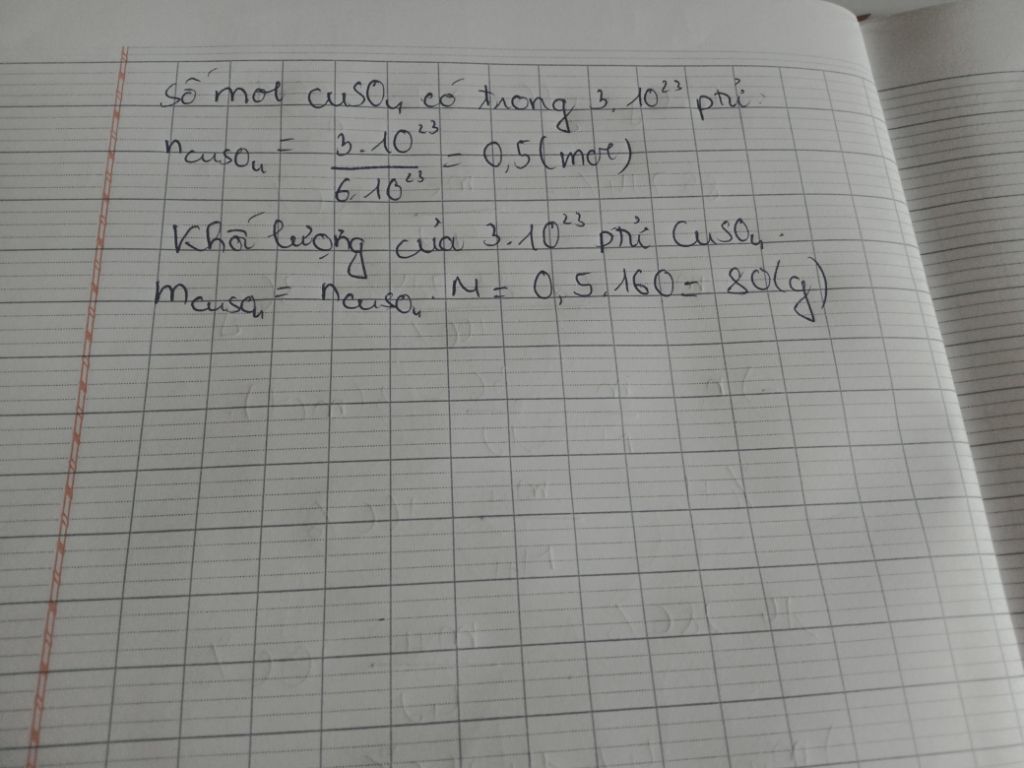 Số mol CuSO₄ có trong 3.10²³ ptử
nCuSO₄ = 3.10²³ / 6.10²³ = 0,5 (mol)
Khối lượng của 3.10²³ ptử CuSO₄.
mCuSO₄ = nCuSO₄ . M = 0,5.160 = 80(g)